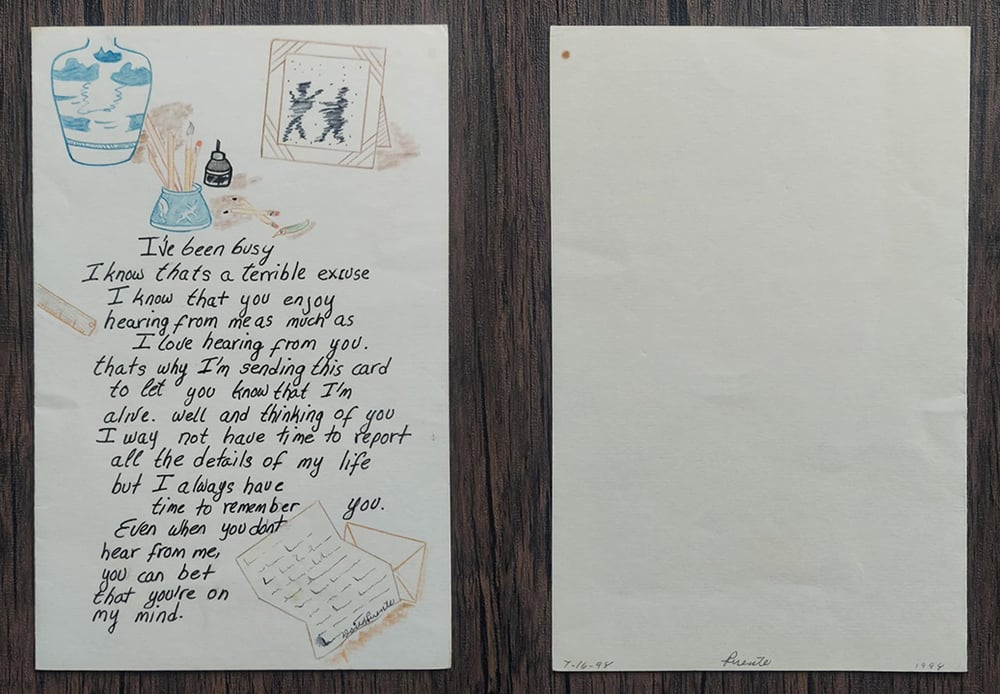 I've been busy
I know thats a terrible excuse
I know that you enjoy
hearing from me as much as
I love hearing from you.
thats why I'm sending this card
to let you know that I'm
alive. well and thinking of you
I way not have time to report
all the details of my life
but I always have
time to remember you.
Even when you dont
hear from me,
you can bet
that you're on
my mind.
Puente
7-16-98 Puente 1998